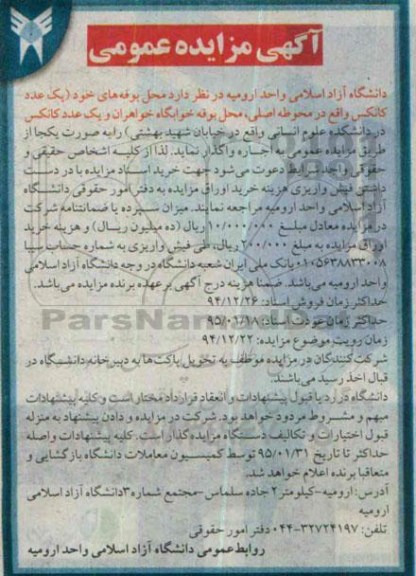 آگهی مزایده عمومی
دانشگاه آزاد اسلامی واحد ارومیه در نظر دارد محل بوفه‌های خود (یک عدد
کانکس واقع در محوطه اصلی، محل بوفه خوابگاه خواهران و یک عدد کانکس
در دانشکده علوم انسانی واقع در خیابان شهید بهشتی) را به صورت یکجا از
طریق مزایده عمومی به اجاره واگذار نماید. لذا از کلیه اشخاص حقیقی و
حقوقی واجد شرایط دعوت می‌شود جهت خرید اسناد مزایده با در دست
داشتن فیش واریزی هزینه خرید اوراق مزایده به دفتر امور حقوقی دانشگاه
آزاد اسلامی واحد ارومیه مراجعه نمایند. میزان سپرده یا ضمانتنامه شرکت
در مزایده معادل مبلغ ۱۰/۰۰۰/۰۰۰ ریال (ده میلیون ریال) و هزینه خرید
اوراق مزایده به مبلغ ۲۰۰/۰۰۰ ریال، طی فیش واریزی به شماره حساب سیبا
۰۱۰۵۶۳۸۸۳۳۰۰۸ بانک ملی ایران شعبه دانشگاه در وجه دانشگاه آزاد اسلامی
واحد ارومیه می‌باشد. ضمنا هزینه درج آگهی بر عهده برنده مزایده می‌باشد.
حداکثر زمان فروش اسناد: ۹۴/۱۲/۲۶
حداکثر زمان عودت اسناد: ۹۵/۰۱/۱۸
زمان رویت موضوع مزایده: ۹۴/۱۲/۲۲
شرکت کنندگان در مزایده موظف به تحویل پاکت‌ها به دبیرخانه دانشگاه در
قبال اخذ رسید می‌باشند.
دانشگاه در رد یا قبول پیشنهادات و انعقاد قرارداد مختار است و کلیه پیشنهادات
مبهم و مشروط مردود خواهد بود. شرکت در مزایده و دادن پیشنهاد به منزله
قبول اختیارات و تکالیف دستگاه مزایده گذار است. کلیه پیشنهادات واصله
حداکثر تا تاریخ ۹۵/۰۱/۳۱ توسط کمیسیون معاملات دانشگاه بازگشایی و
متعاقبا برنده اعلام خواهد شد.
آدرس: ارومیه-کیلومتر ۲ جاده سلماس-مجتمع شماره ۳ دانشگاه آزاد اسلامی
ارومیه
تلفن: ۳۲۷۲۴۱۹۷-۰۴۴ دفتر امور حقوقی
روابط عمومی دانشگاه آزاد اسلامی واحد ارومیه